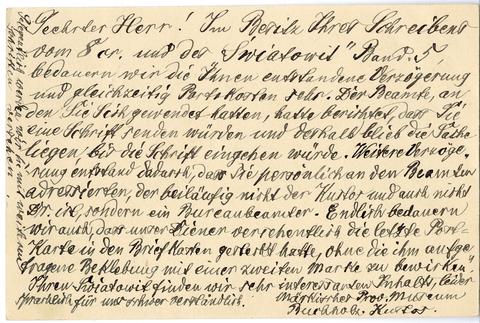 Geehrter Herr! Im Besitz Ihres Schreibens
vom 8 cr. und des "Swiatowit" Band 5
bedauern wir die Ihnen entstandene Verzögerung
und gleichzeitig Portokosten sehr. Der Beamte, an
den Sie Sich gewendet hatten, hatte berichtet, dass Sie
eine Schrift senden würden und deshalb blieb die Sache
liegen, bis die Schrift eingehen würde. Weitere Verzöge-
rung entstand dadurch, dass Sie persönlich an den Beamten
adressierten, der beiläufig nicht der Kustos und auch nicht
Dr. ist, sondern ein Bureaubeamter. Endlich bedauern
wir auch, dass unser Diener versehentlich die letzte Post-
Karte in den Briefkasten gesteckt hatte, ohne die ihm aufge-
tragene Beklebung mit einer zweiten Marke zu bewirken.
Ihren Swiatowit finden wir sehr interessanten Inhalts, leider
sprachlich für uns schwer verständlich.
Märkisches Prov. Museum
Buchholz. Kustos.